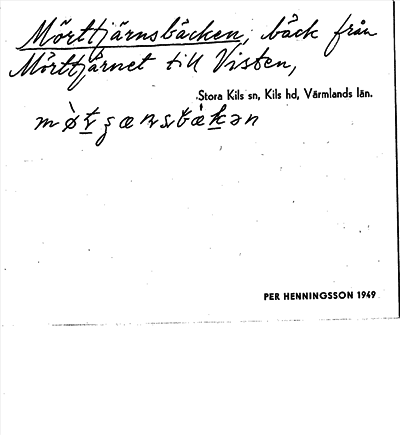 Mörttjärnsbäcken, bäck från
Mörttjärnet till Visten,
Stora Kils sn, Kils hd, Värmlands län.
PER HENNINGSSON 1949